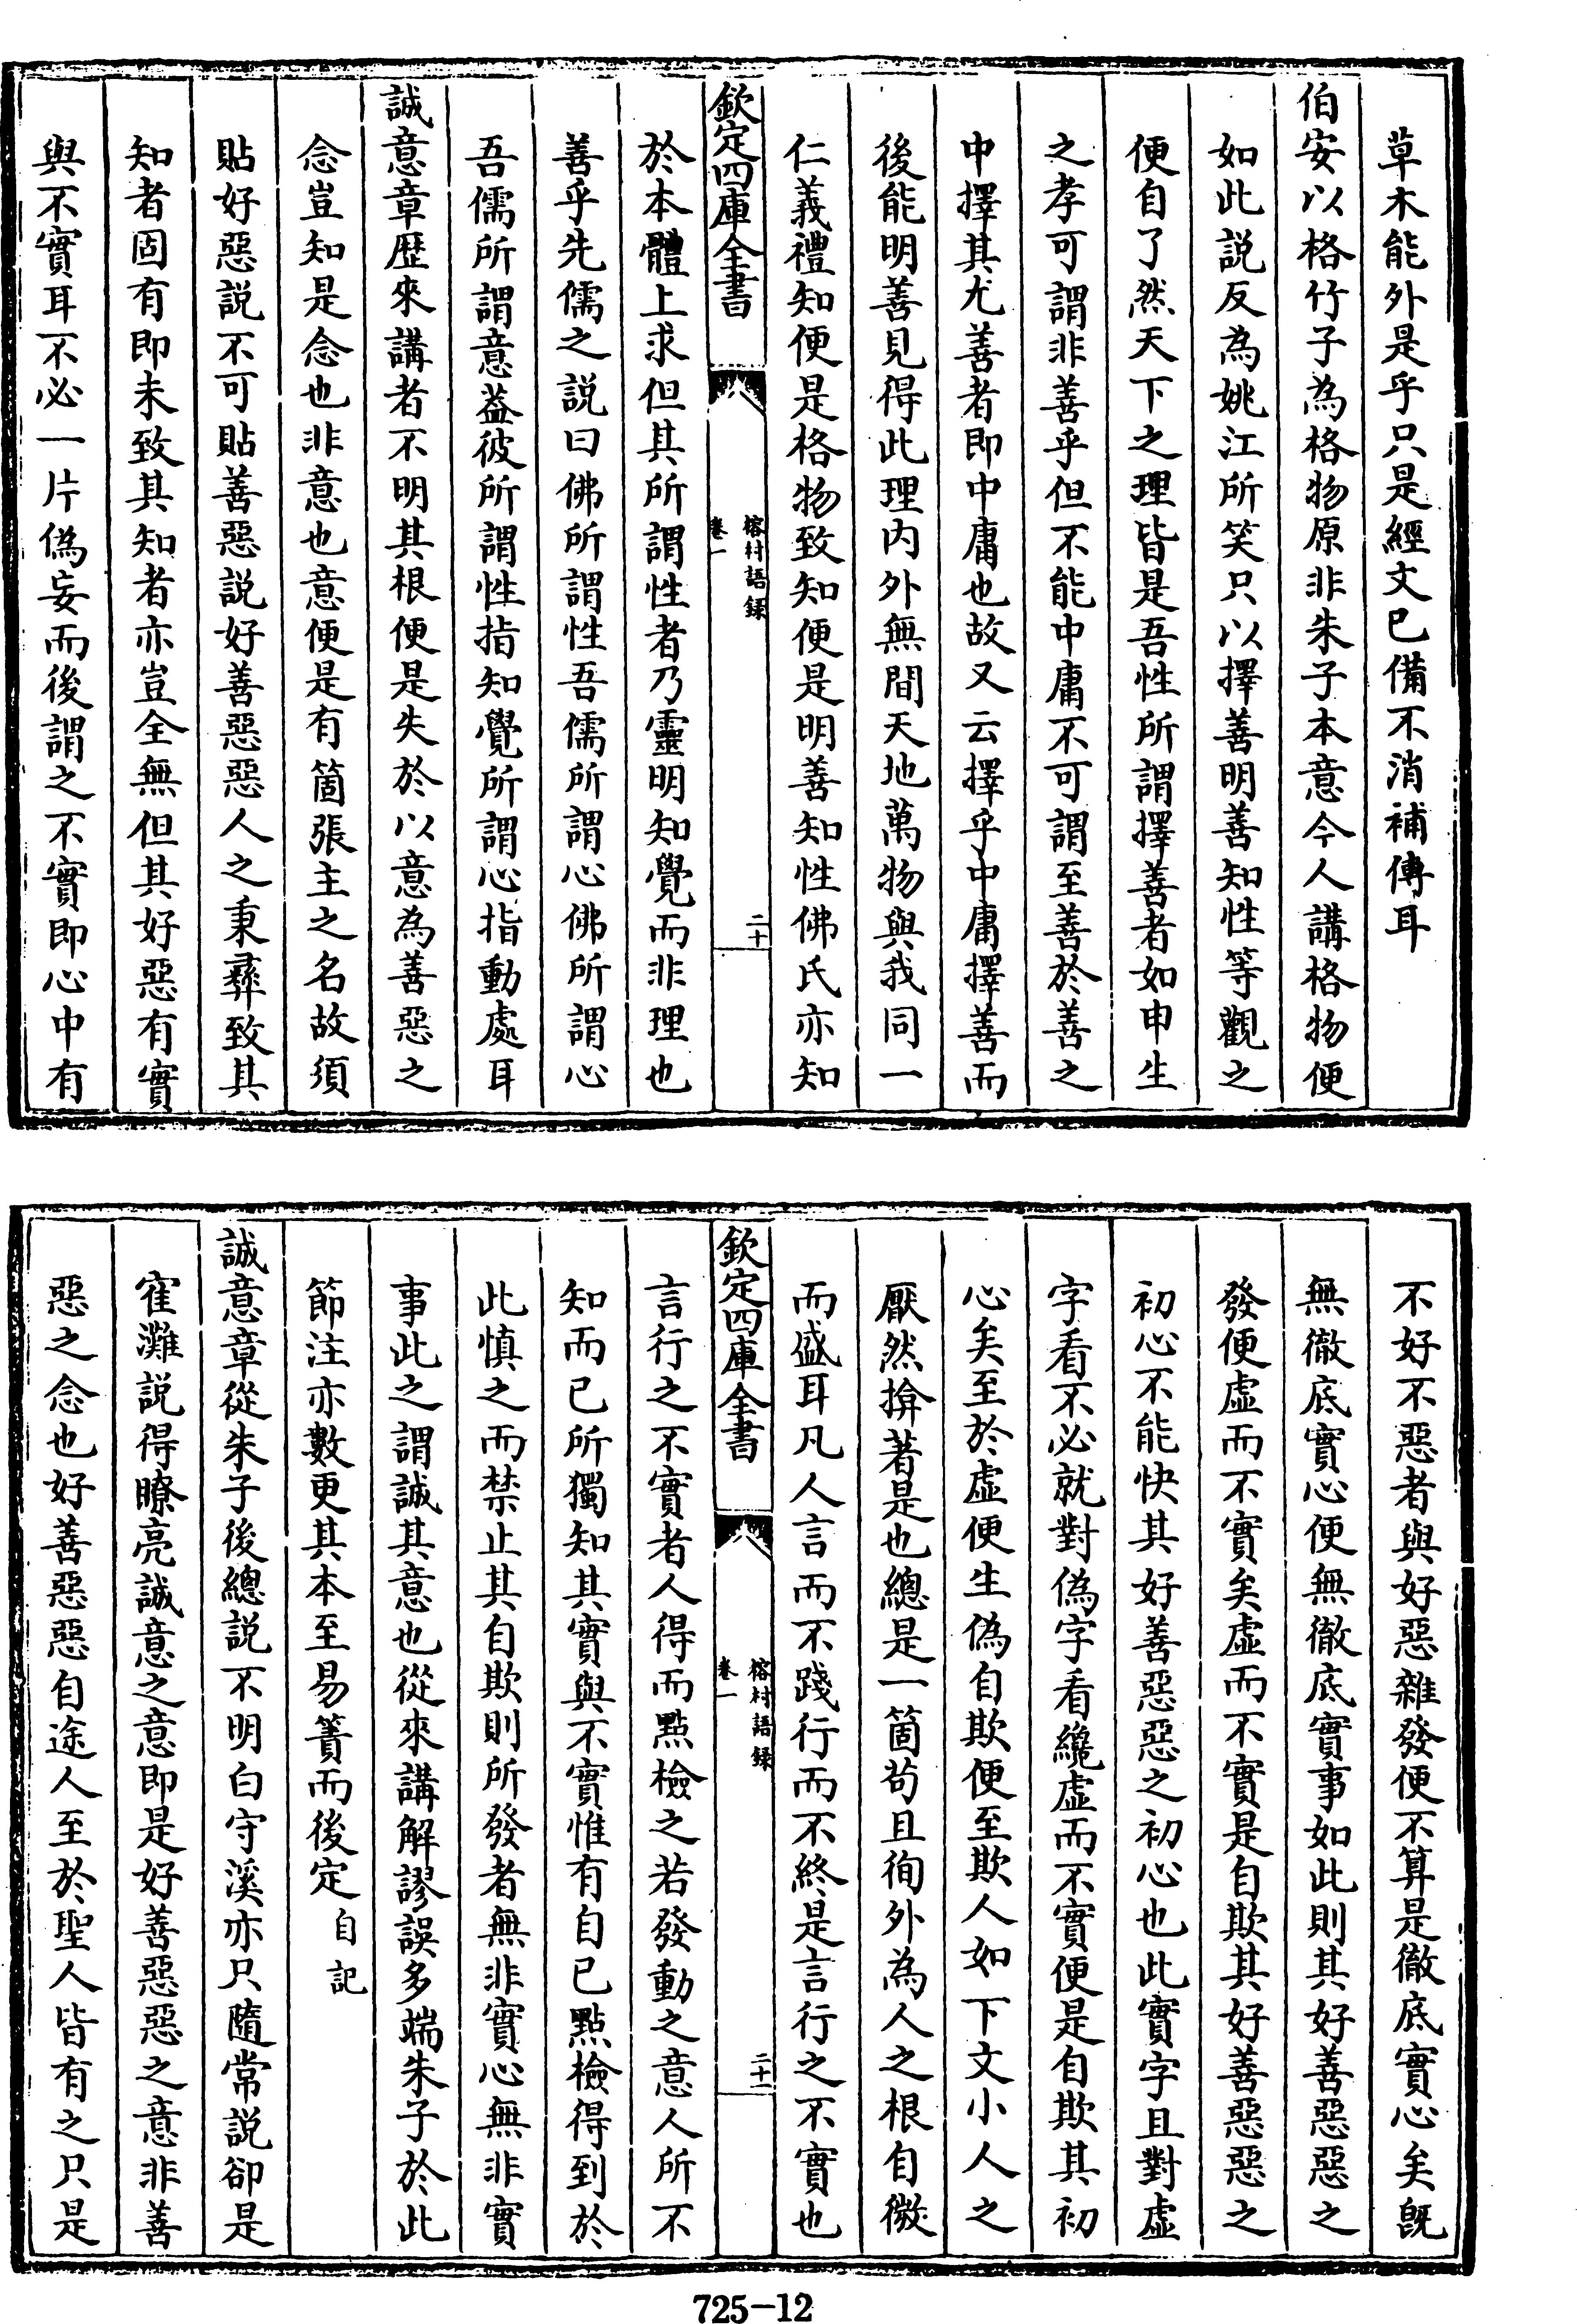 草木能外是乎只是經文已備不消補傳耳
伯安以格竹子為格物原非朱子本意今人講格物便
如此説反為姚江所笑只以擇善明善知性等觀之
便自了然天下之理皆是吾性所謂擇善者如申生
之孝可謂非善乎但不能中庸不可謂至善於善之
中擇其尤善者即中庸也故又云擇乎中庸擇善而
後能明善見得此理内外無間天地萬物與我同一
仁義禮知便是格物致知便是明善知性佛氏亦知
欽定四庫全書
榕村語録
卷一
二十
於本體上求但其所謂性者乃靈明知覺而非理也
善乎先儒之説曰佛所謂性吾儒所謂心佛所謂心
吾儒所謂意葢彼所謂性指知覺所謂心指動處耳
誠意章歴來講者不明其根便是失於以意為善惡之
念豈知是念也非意也意便是有箇張主之名故須
貼好惡説不可貼善惡説好善惡惡人之秉彞致其
知者固有即未致其知者亦豈全無但其好惡有實
與不實耳不必一片偽妄而後謂之不實即心中有
不好不惡者與好惡雜發便不算是徹底實心矣旣
無徹底實心便無徹底實事如此則其好善惡惡之
發便虛而不實矣虛而不實是自欺其好善惡惡之
初心不能快其好善惡惡之初心也此實字且對虛
字看不必就對偽字看纔虛而不實便是自欺其初
心矣至於虛便生偽自欺便至欺人如下文小人之
厭然揜著是也總是一箇茍且徇外為人之根自微
而盛耳凡人言而不踐行而不終是言行之不實也
欽定四庫全書
榕村語録
卷一
二十一
言行之不實者人得而點檢之若發動之意人所不
知而已所獨知其實與不實惟有自已點檢得到於
此慎之而禁止其自欺則所發者無非實心無非實
事此之謂誠其意也從來講解謬誤多端朱子於此
節注亦數更其本至易簀而後定自記
誠意章從朱子後總説不明白守溪亦只隨常説卻是
寉灘説得暸亮誠意之意即是好善惡惡之意非善
惡之念也好善惡惡自途人至於聖人皆有之只是
725-12